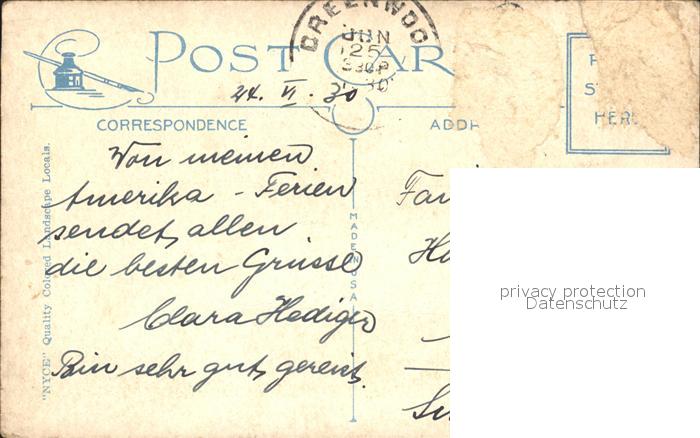 POST CAR
GREENWOO
JUN
25
24. VI. 30
CORRESPONDENCE
Von meinen
Amerika - Ferien
sendet allen
die besten Grüsse
Clara Hediger
Bin sehr gut gereist.
"NYCE" Quality Colored Landscape Locals.
MADE IN USA
ADDR
HERE
Fa
privacy protection
Datenschutz